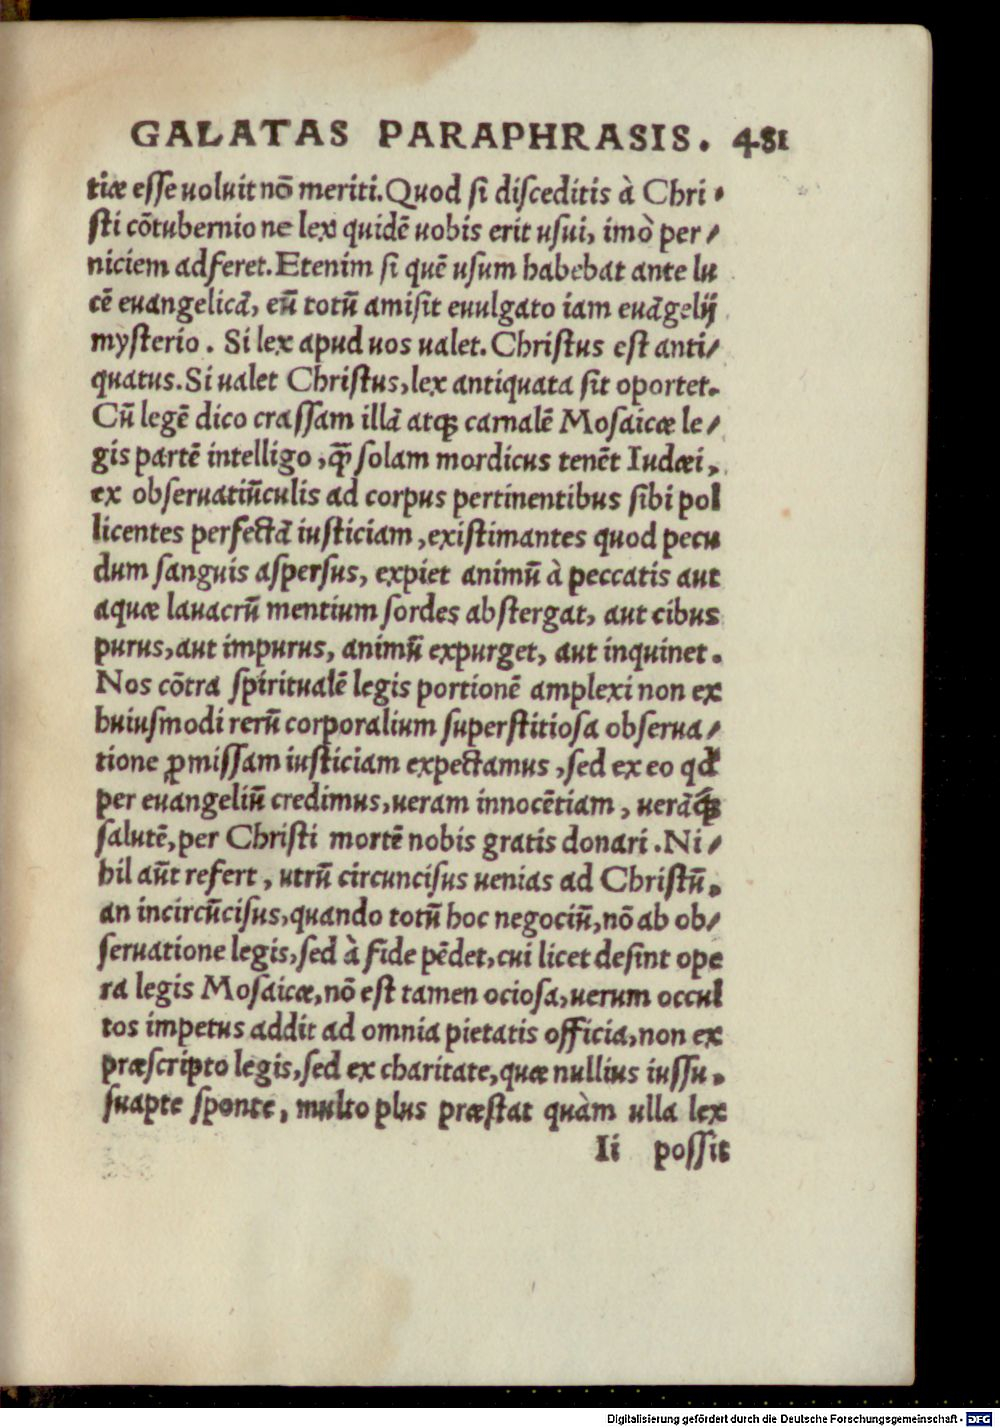 GALATAS PARAPHRASIS. 481
tiæ esse uoluit nō meriti. Quod si disceditis à Chri-
sti cōtubernio ne lex quidē uobis erit usui, imò per-
niciem adferet. Etenim si quē usum habebat ante lu
cē euangelicā, eū totū amisit euulgato iam euāgelij
mysterio. Si lex apud uos ualet. Christus est anti-
quatus. Si ualet Christus, lex antiquata sit oportet.
Cū legē dico crassam illā atqꝫ carnalē Mosaicæ le-
gis partē intelligo, quā solam mordicus tenēt Iudæi,
ex obseruatiūculis ad corpus pertinentibus sibi pol
licentes perfectā iusticiam, existimantes quod pecu
dum sanguis aspersus, expiet animū à peccatis aut
aquæ lauacrū mentium sordes abstergat, aut cibus
purus, aut impurus, animū expurget, aut inquinet.
Nos cōtra spiritualē legis portionē amplexi non ex
huiusmodi rerū corporalium superstitiosa obserua-
tione ꝓmissam iusticiam expectamus, sed ex eo qd'
per euangeliū credimus, ueram innocētiam, uerāqꝫ
salutē, per Christi mortē nobis gratis donari. Ni-
hil aūt refert, utrū circuncisus uenias ad Christū,
an incircūcisus, quando totū hoc negociū, nō ab ob-
seruatione legis, sed à fide pēdet, cui licet desint ope
ra legis Mosaicæ, nō est tamen ociosa, uerum occul
tos impetus addit ad omnia pietatis officia, non ex
præscripto legis, sed ex charitate, quæ nullius iussu,
suapte sponte, multo plus præstat quàm ulla lex
Ii possit
Digitalisierung gefördert durch die Deutsche Forschungsgemeinschaft - DFG